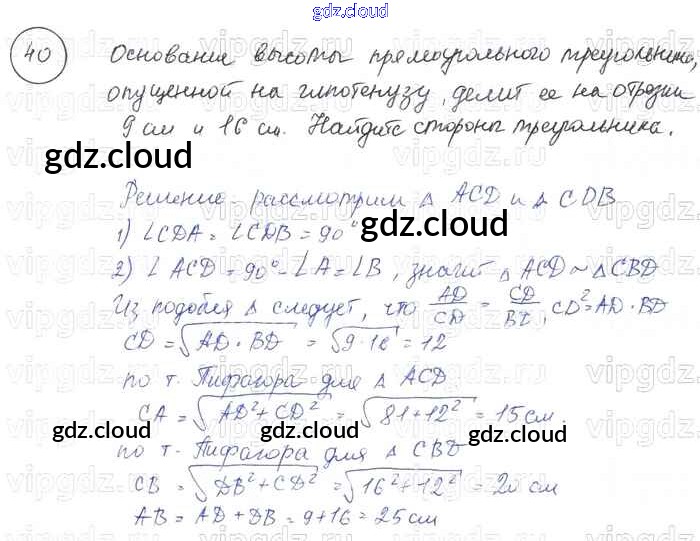 gdz.cloud
40 Основание высоты прямоугольного треугольника,
опущенной на гипотенузу, делит ее на отрезки
9 см и 16 см. Найдите стороны треугольника.
gdz.cloud
Решение - рассмотрим Δ ACD и Δ CDB
1) ∠CDA = ∠CDB = 90°
gdz.cloud
2) ∠ ACD = 90° - ∠A = ∠B, значит Δ ACD ~ Δ CBD
Из подобия Δ следует, что AD/CD = CD/BD, CD² = AD · BD
CD = √AD · BD = √9 · 16 = 12
по т. Пифагора для Δ ACD
gdz.cloud gdz.cloud
CA = √AD² + CD² = √81 + 12² = 15 см.
gdz.cloud gdz.cloud
по т. Пифагора для Δ CBD
CB = √DB² + CD² = √16² + 12² = 20 см
AB = AD + DB = 9 + 16 = 25 см
gdz.cloud gdz.cloud